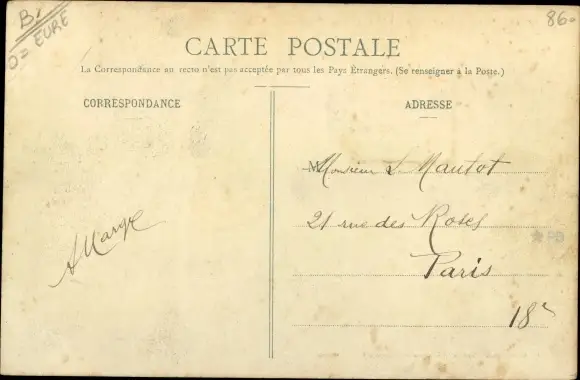 B/
D= EURE
86-
CARTE POSTALE
La Correspondance au recto n'est pas acceptée par tous les Pays Étrangers. (Se renseigner à la Poste.)
CORRESPONDANCE
ADRESSE
Monsieur L. Mautot
21 rue des Roses
Paris
18e